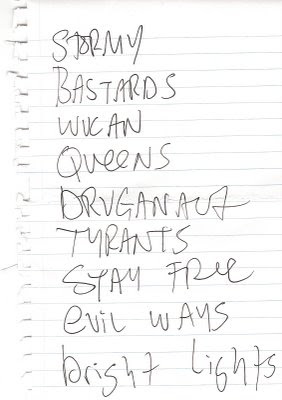 STORMY
BASTARDS
WUCAN
Queens
DRUGANAUT
TYRANTS
STAY FRee
evil WAYS
bright Lights